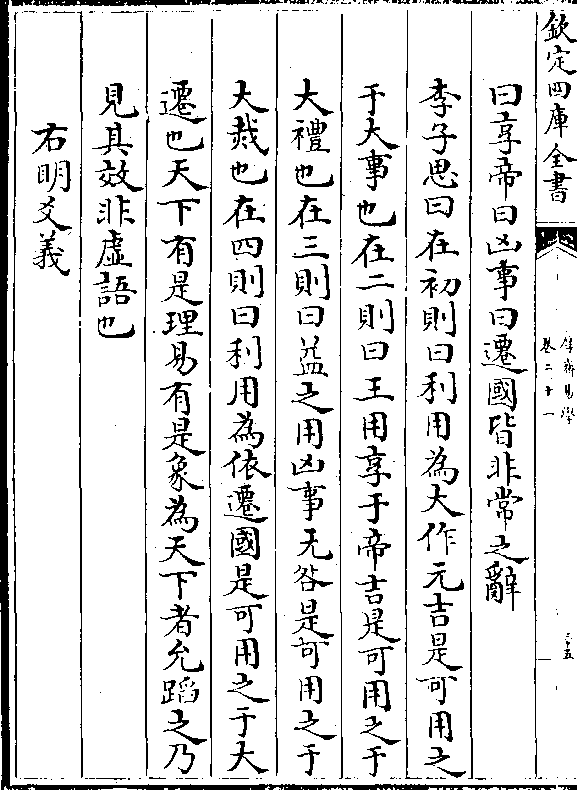 欽定四庫全書
厚齋易學
卷二十一
三十五
曰享帝曰凶事曰遷國皆非常之辭
李子思曰在初則曰利用為大作元吉是可用之
于大事也在二則曰王用享于帝吉是可用之于
大禮也在三則曰益之用凶事无咎是可用之于
大烖也在四則曰利用為依遷國是可用之于大
遷也天下有是理易有是象為天下者允蹈之乃
見其效非虛語也
右明爻義